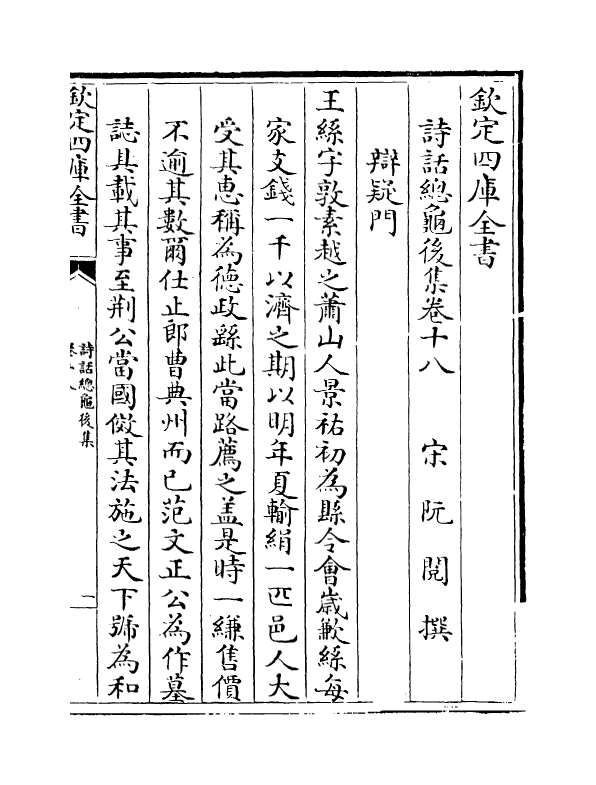 欽定四庫全書
詩話總龜後集卷十八　宋　阮　閱　撰
辯疑門
王絲字敦素越之蕭山人景祐初為縣令會歲歉絲每
家支錢一千以濟之期以明年夏輸絹一匹邑人大
受其恵稱為德政繇此當路薦之盖是時一縑售價
不逾其數爾仕止郎曹典州而已范文正公為作墓
誌具載其事至荆公當國倣其法施之天下號為和
欽定四庫全書
詩話總龜後集
卷十八
一